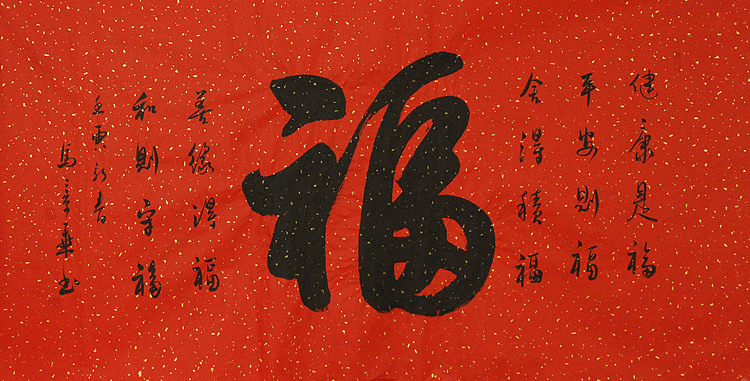 健康是福
平安則福
舍得積福
福
善緣得福
和則守福
壬寅春
馬书